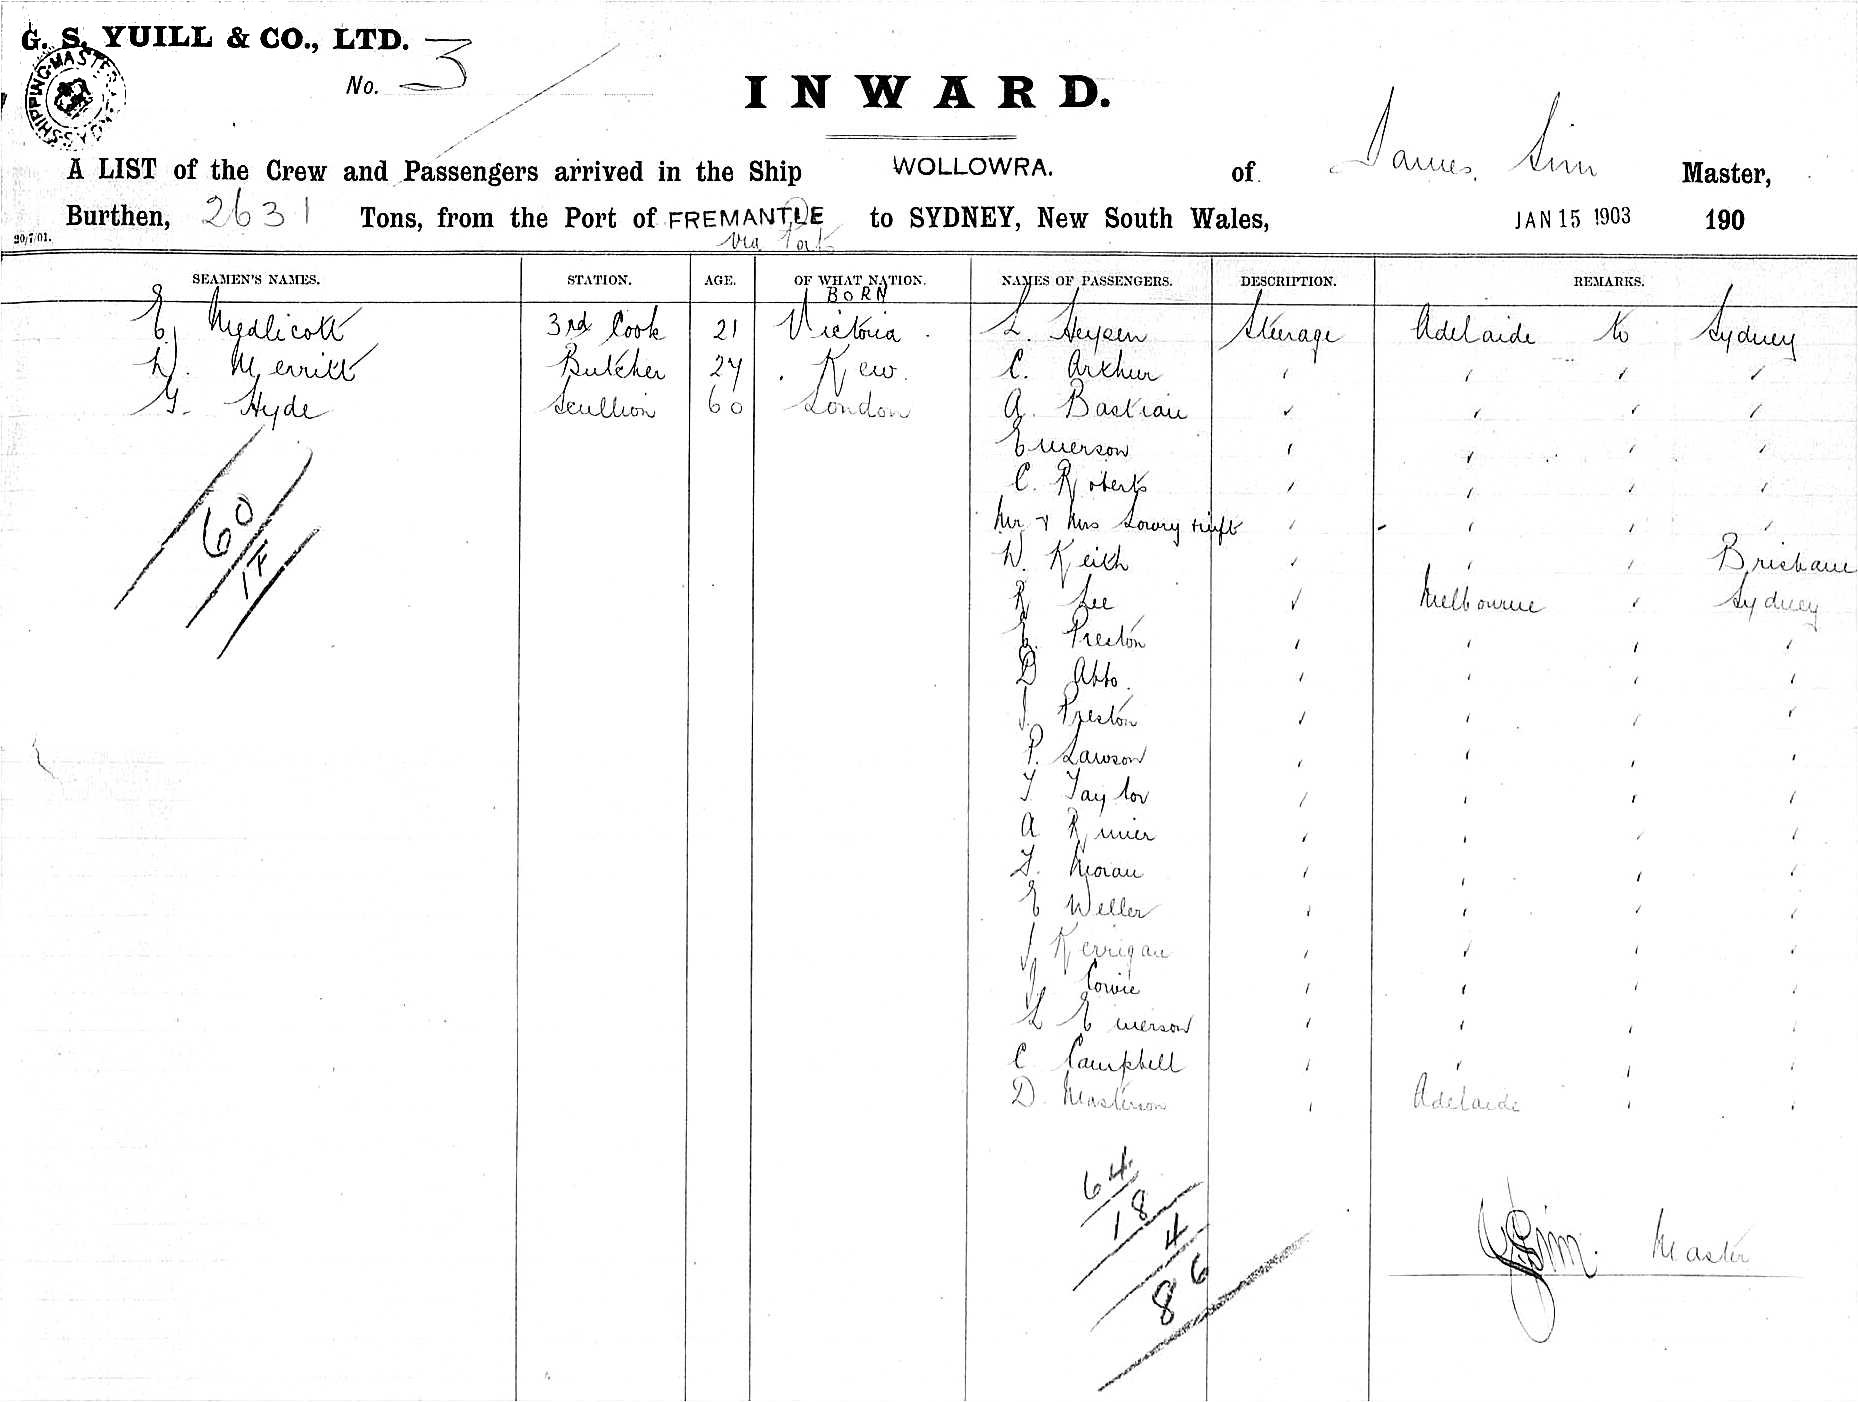 G. S. YUILL & CO., LTD.
No. 3
SHIPPING MASTER
INWARD.
A LIST of the Crew and Passengers arrived in the Ship WOLLOWRA. of James Sim Master,
Burthen, 2631 Tons, from the Port of FREMANTLE to SYDNEY, New South Wales, JAN 15 1903 190
20/7/01. via Ports
SEAMEN'S NAMES. STATION. AGE. OF WHAT NATION. NAMES OF PASSENGERS. DESCRIPTION. REMARKS.
BORN
E. Medlicott 3rd Cook 21 Victoria. L. Heysen Steerage Adelaide to Sydney
W. Merritt Butcher 27 Kew. C. Arthur " " " "
G. Hyde Scullion 60 London A. Bastian " " " "
Emerson " " " "
C. Roberts " " " "
Mr & Mrs Lowry & inft " " " "
W. Keith " " " Brisbane
R Lee " Melbourne " Sydney
E. Preston " " " "
D Abbo. " " " "
J. Preston " " " "
P. Lawson " " " "
T. Taylor " " " "
A " " " "
F. Moran " " " "
E Weller " " " "
J Kerrigan " " " "
J. Cowie " " " "
L Emerson " " " "
C Campbell " " " "
D. Masterson " Adelaide " "
60
17
64
18
4
86
J Sim. Master